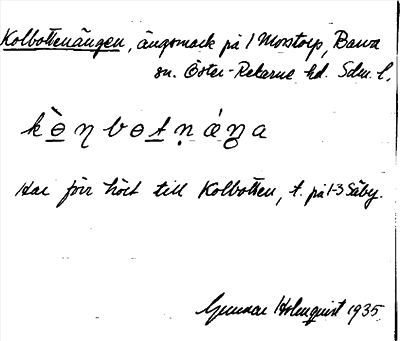 Kolbottenängen, ängsmark på 1 Morstorp, Barva
sn. Öster-Rekarne hd. Sdm. l.
Har förr hört till Kolbotten, t. på 1-3 Säby.
Gunnar Holmquist 1935